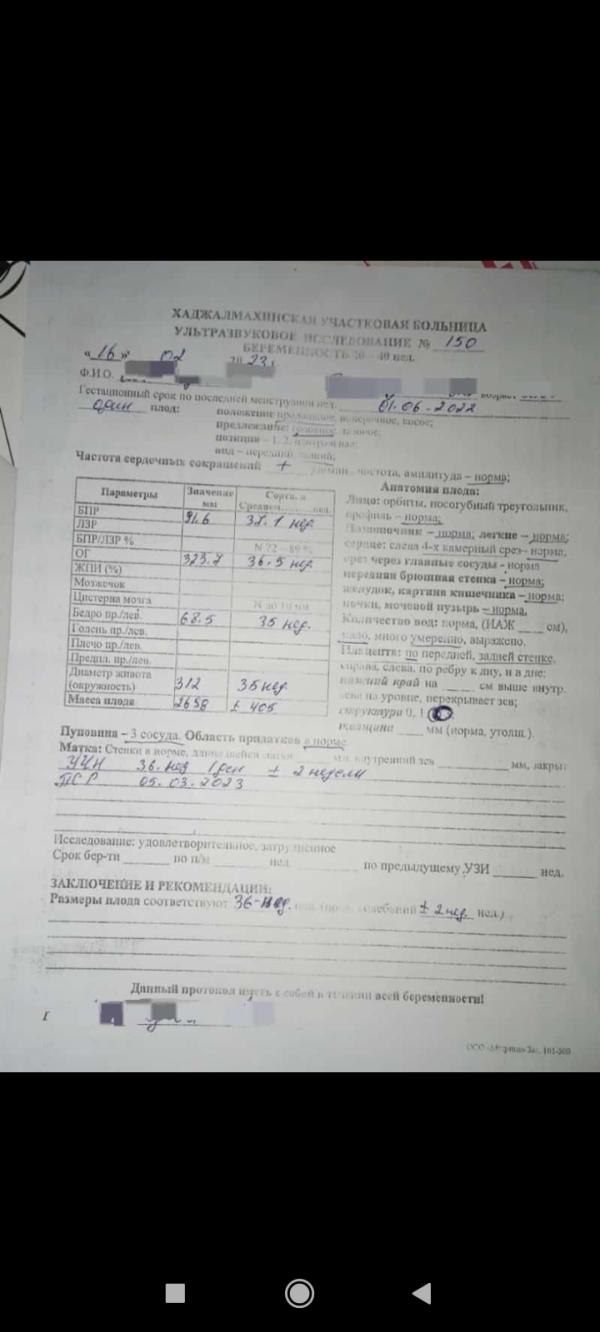 ХАДЖАЛМАХИНСКАЯ УЧАСТКОВАЯ БОЛЬНИЦА
УЛЬТРАЗВУКОВОЕ ИССЛЕДОВАНИЕ № 150
БЕРЕМЕННОСТЬ 20 – 40 нед.
«16» 02 2023 г
Ф.И.О.
Гестационный срок по последней менструации нед. 01.06.2022
один плод: положение продольное, поперечное, косое;
предлежание: головное, тазовое;
позиция – 1, 2,
вид – передний, задний;
Частота сердечных сокращений + частота, амплитуда – норма;
Параметры Значение мм Соотв. в Среднем нед.
БПР 91,6 37.1 нед
ЛЗР
БПР/ЛЗР % N 72 – 89 %
ОГ 323.7 36.5 нед
ЖПИ (%)
Мозжечок
Цистерна мозга N до 10 мм
Бедро пр./лев. 68.5 35 нед.
Голень пр./лев.
Плечо пр./лев.
Предпл. пр./лев.
Диаметр живота (окружность) 312 35 нед
Масса плода 2658 ± 405
Анатомия плода:
Лицо: орбиты, носогубный треугольник,
профиль – норма;
Позвоночник – норма; легкие – норма;
сердце: слева 4-х камерный срез – норма,
срез через главные сосуды - норма
передняя брюшная стенка – норма;
желудок, картина кишечника – норма;
почки, мочевой пузырь – норма,
Количество вод: норма, (ИАЖ ____ см),
мало, много умеренно, выражено.
Плацента: по передней, задней стенке,
справа, слева, по ребру к дну, и в дне;
нижний край на ____ см выше внутр.
зева на уровне, перекрывает зев;
структура 0, 1
толщина ____ мм (норма, утолщ.).
Пуповина – 3 сосуда. Область придатков в норме
Матка: Стенки в норме, длина шейки матки ____ мм, внутренний зев ____ мм, закрыт
36. нед 1 ден ± 2 недели
ПСР 05.03.2023
Исследование: удовлетворительное, затрудненное
Срок бер-ти ____ по п/м ____ нед. ____ по предыдущему УЗИ ____ нед.
ЗАКЛЮЧЕНИЕ И РЕКОМЕНДАЦИИ:
Размеры плода соответствуют 36-нед. колебаний ± 2 нед. нед.)
Данный протокол иметь с собой в течении всей беременности!